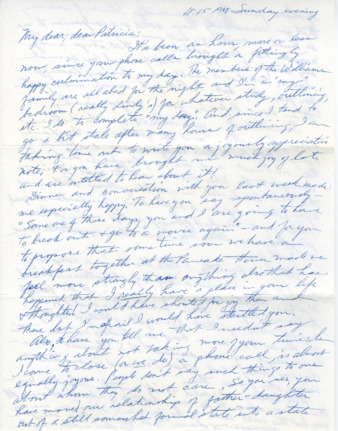 11-15 Sunday evening
My dear, dear Patricia:
It's been an hour, more or less
now since your phone call brought a fittingly
happy culmination to my day. The members of the
family are all abed for the night and I'm in "my"
bedroom (really 's) for whatever study, outlining,
etc. I do to complete "my day". And since I tend to
go a bit stale after many hours of outlining, I am
taking time out to write you a joyously appreciative
note, for you have brought me much joy of late
and are entitled to hear about it!
Dinner and conversation with you last week made
me especially happy. To have you say spontaneously -
"Some of these days, you and I are going to have
to break out & go to a movie again" - and for you
to propose that some time soon we have a
breakfast together at the House made me
feel more strongly than anything else that has
happened that I really have a place in your life
& thoughts! I could have shouted for joy then and
there but I'm afraid I would have startled you.
Also, to have you tell me that I needn't say
anything about not taking more of your time when
I come to close (or we do) a phone call, is about
equally joyous. People don't say such things to one
about whom they do not care. So you see, you
have moved our relationship of father-daughter
out of a still somewhat formal state into a state